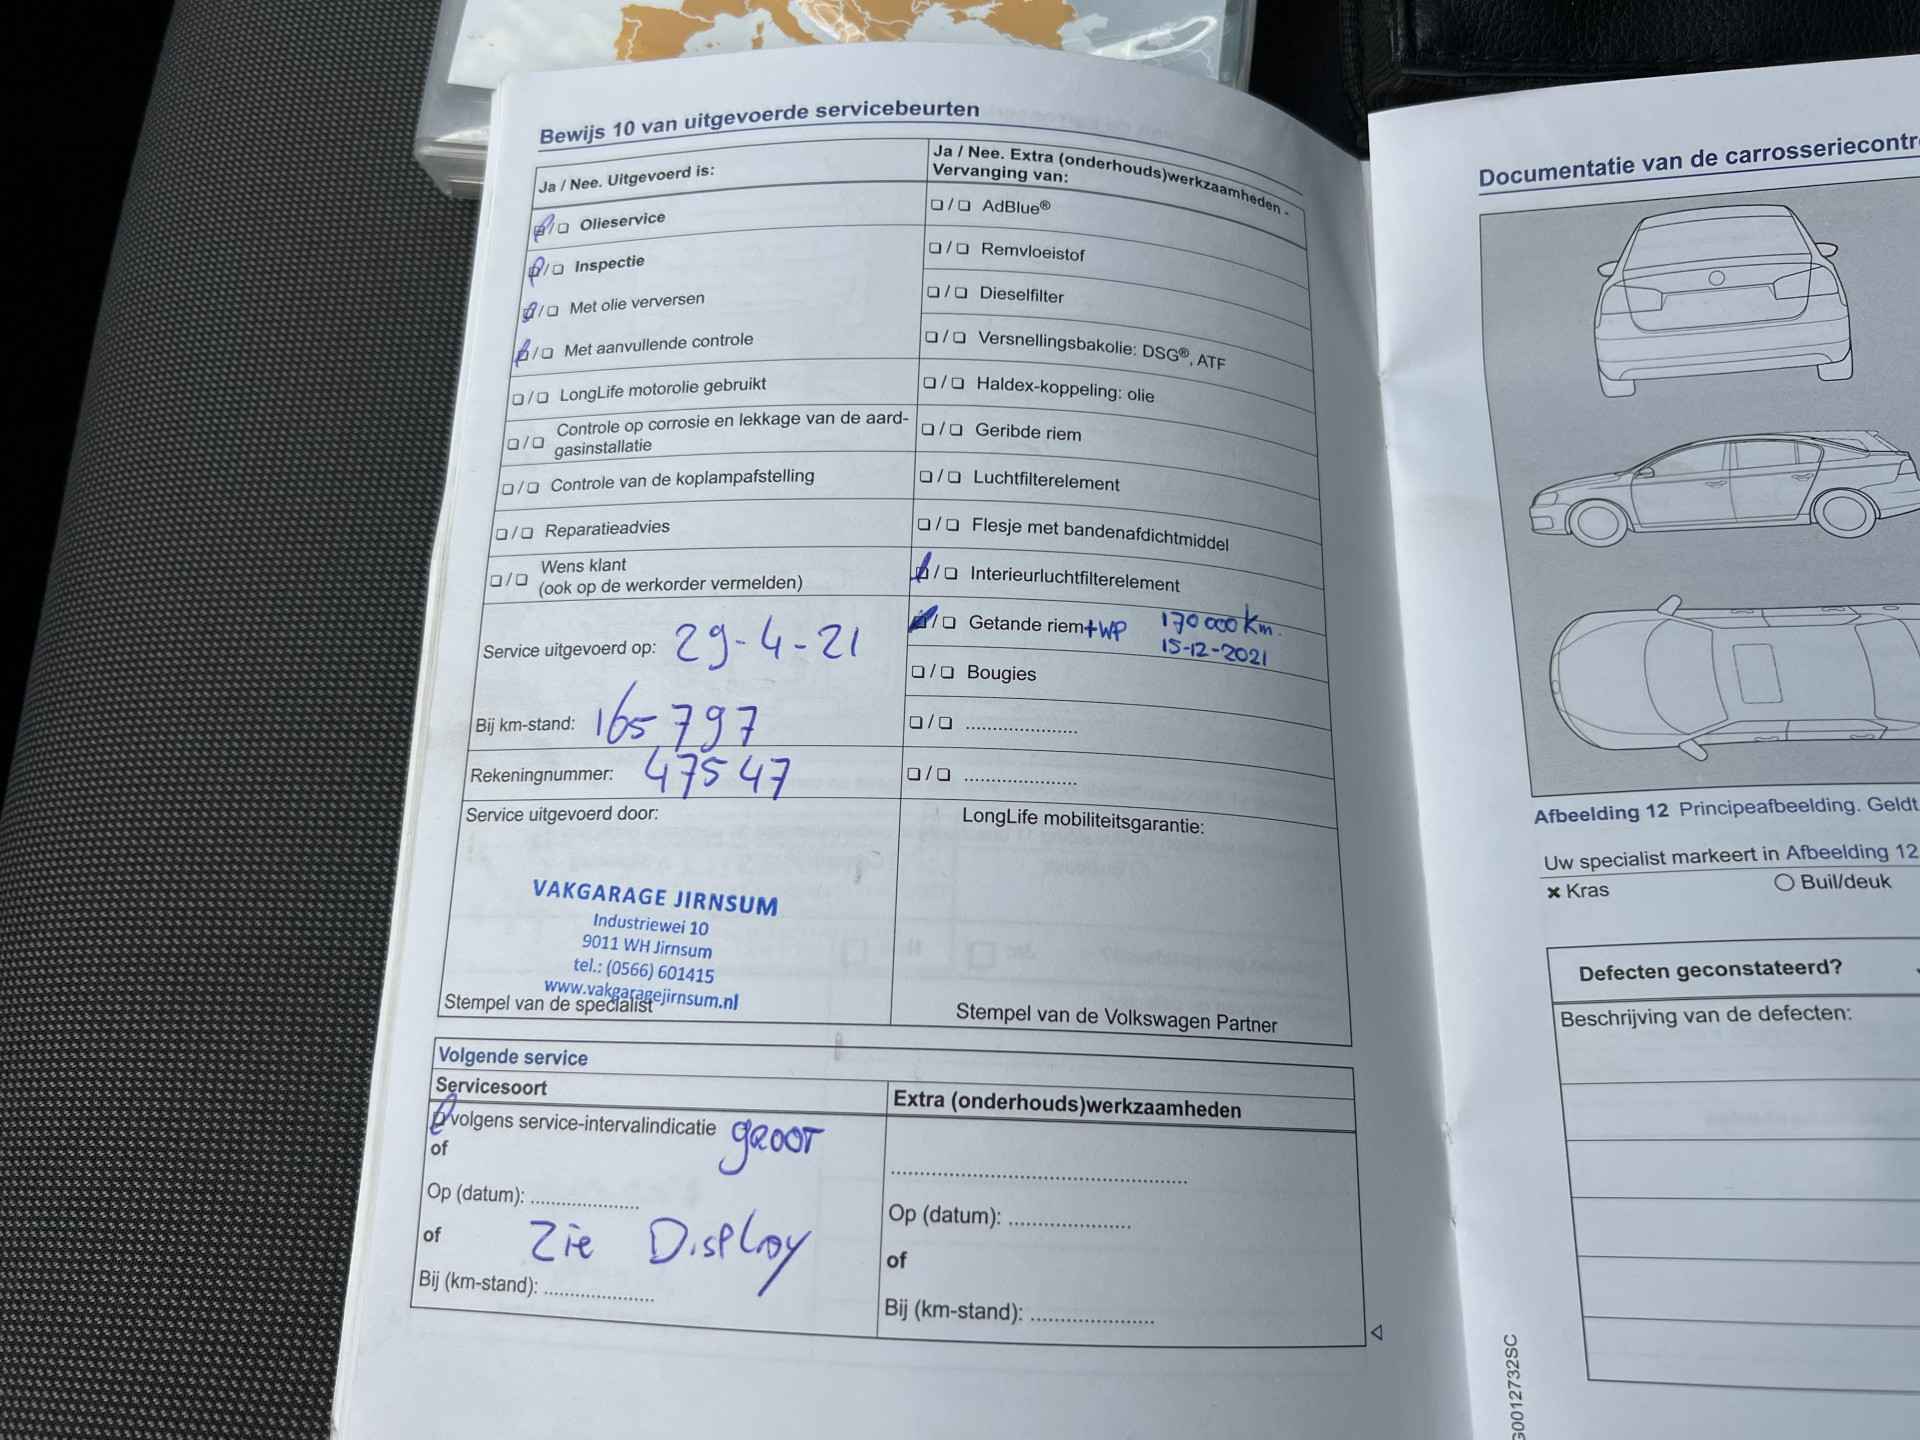 Bewijs 10 van uitgevoerde servicebeurten
Ja / Nee. Uitgevoerd is:
/ Olieservice
/ Inspectie
/ Met olie verversen
/ Met aanvullende controle
/ LongLife motorolie gebruikt
/ Controle op corrosie en lekkage van de aard-
gasinstallatie
/ Controle van de koplampafstelling
/ Reparatieadvies
/ Wens klant
(ook op de werkorder vermelden)
Service uitgevoerd op: 29-4-21
Bij km-stand: 165797
Rekeningnummer: 47547
Service uitgevoerd door:
VAKGARAGE JIRNSUM
Industriewei 10
9011 WH Jirnsum
tel.: (0566) 601415
www.vakgaragejirnsum.nl
Stempel van de specialist
Ja / Nee. Extra (onderhouds)werkzaamheden -
Vervanging van:
/ AdBlue®
/ Remvloeistof
/ Dieselfilter
/ Versnellingsbakolie: DSG®, ATF
/ Haldex-koppeling: olie
/ Geribde riem
/ Luchtfilterelement
/ Flesje met bandenafdichtmiddel
/ Interieurluchtfilterelement
/ Getande riem +WP 170000 km.
15-12-2021
/ Bougies
/ ....................
/ ....................
LongLife mobiliteitsgarantie:
Stempel van de Volkswagen Partner
Volgende service
Servicesoort
volgens service-intervalindicatie GROOT
of
Op (datum): ....................
of Zie Display
Bij (km-stand): ....................
Extra (onderhouds)werkzaamheden
......................................................
Op (datum): ......................
of
Bij (km-stand): ......................
Documentatie van de carrosseriecontr
Afbeelding 12 Principeafbeelding. Geldt
Uw specialist markeert in Afbeelding 12
× Kras
Buil/deuk
Defecten geconstateerd?
Beschrijving van de defecten:
G0012732SC